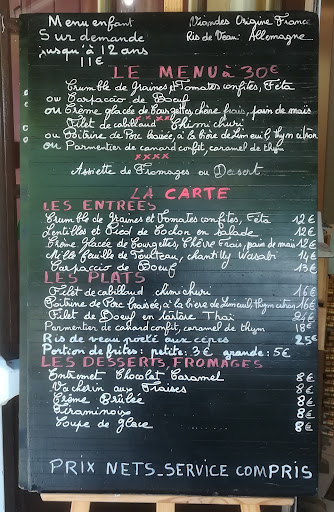 Menu enfant
Sur demande
jusqu'à 12 ans
11€
Viandes Origine France
Ris de Veau: Allemagne
LE MENU à 30€
Crumble de Graines et Tomates confites, Féta
ou Carpaccio de Boeuf
ou Crème glacée de Courgettes, chèvre frais, pain de maïs
xxxx
Filet de cabillaud Chimichuri
ou Poitrine de Porc braisée, à la bière de Limeuil, thym citron
ou Parmentier de canard confit, caramel de thym
xxxx
Assiette de Fromages ou Dessert
LA CARTE
LES ENTRÉES
Crumble de Graines et Tomates confites, Féta 12€
Lentilles et Pied de Cochon en Salade 12€
Crème Glacée de Courgettes, Chèvre Frais, pain de maïs 12€
Mille feuille de Tourteau, chantilly Wasabi 14€
Carpaccio de Boeuf 13€
LES PLATS
Filet de cabillaud chimichuri 16€
Poitrine de Porc braisée, à la bière de Limeuil, thym citron 16€
Filet de Boeuf en tartare Thaï 24€
Parmentier de canard confit, caramel de thym 18€
Ris de veau poêlé aux cèpes 25€
Portion de frites: petite: 3€ grande: 5€
LES DESSERTS, FROMAGES
Entremet Chocolat Caramel 8€
Vacherin aux Fraises 8€
Crème Brûlée 8€
Tiramisou 8€
Coupe de glace 8€
PRIX NETS_SERVICE COMPRIS